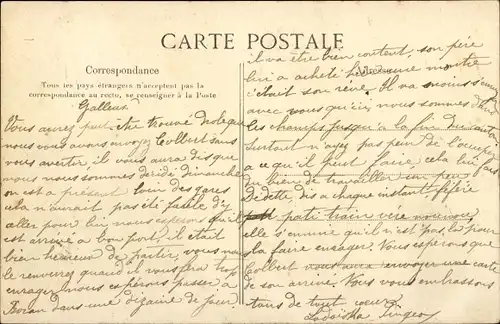 CARTE POSTALE
Correspondance
Tous les pays étrangers n'acceptent pas la
correspondance au recto, se renseigner à la Poste
Vous aurez peut être trouvé drole que
nous vous avons envoyé Colbert sans
vous avertir il vous aura dis que
nous nous sommes décidé dimanche
on est a présent loin des gares
cela n'aurait pas été facile d'y
aller pour lui nous espérons qu'il
est arrivé a bon port, il était
bien heureux de partir, vous nous
le renverez quand il vous fera trop
enrager nous espérons passer a
dans une dizaine de jours
il va être bien content, son père
lui a acheté une montre
c'était son rêve. Il va moins
avec vous qu'ici, nous sommes dans
les champs jusqu'a la fin du
Surtout n'ayez pas peur de l'occuper
a ce qu'il peut faire, cela lui fais
du bien de travailler un peu
Dédette, dis a chaque instant, fefère
pati train vère nounou
elle s'ennuie qu'il n'est pas la pour
la faire enrager. Vous espérons que
Colbert vous aura envoyer une carte
de son arrivée. Nous vous embrassons
tous de tout coeur